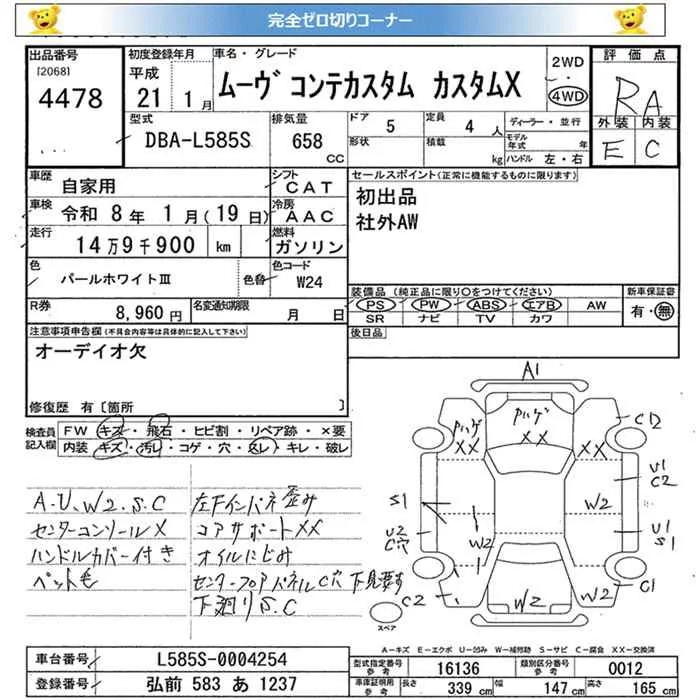 完全ゼロ切りコーナー
出品番号
[2068]
4478
初度登録年月
平成
21 1月
車名・グレード
ムーヴ コンテカスタム カスタムX
2WD
4WD
評価点
RA
外装 内装
E C
型式
DBA-L585S
排気量
658
CC
ドア
5
定員
4 人
ディーラー・並行
形状
積載
kg
モデル年式 年
ハンドル 左・右
車歴
自家用
シフト
CAT
車検
令和 8年 1月(19日)
冷房
AAC
走行
14万9千900 km
燃料
ガソリン
色
パールホワイトⅢ
色替
色コード
W24
R券
8,960円
名変通知期限
月 日
セールスポイント(正常に機能するものに限ります)
初出品
社外AW
装備品(純正品に限り○をつけてください)
PS PW ABS エアB AW
SR ナビ TV カワ
新車保証書
有・無
後日品
注意事項申告欄(不具合内容等は具体的に記入して下さい)
オーデイオ欠
修復歴 有〔箇所 〕
検査員記入欄
FW キズ・飛石・ヒビ割・リペア跡・×要
内装 キズ・汚レ・コゲ・穴・スレ・キレ・破レ
A.U.W2.S.C
センターコンソールX
ハンドルカバー付き
ペット毛
左F インパネ歪み
コアサポートXX
オイルにじみ
センターフロアパネルC穴 下見要す
下廻りS.C
A1
Pハゲ
XX
Pハゲ
XX
XX
C2
U1
C2
S1
W2
U2
C穴
W2
U1
S1
C2
W2
W2
C1
スペア
A-キズ E-エクボ U-凹み W-補修跡 S-サビ C-腐食 XX-交換済
車台番号
L585S-0004254
登録番号
弘前 583 あ 1237
型式指定番号
参考
16136
類別区分番号
参考
0012
車庫証明用
参考
長さ
339 cm
幅
147 cm
高さ
165 cm